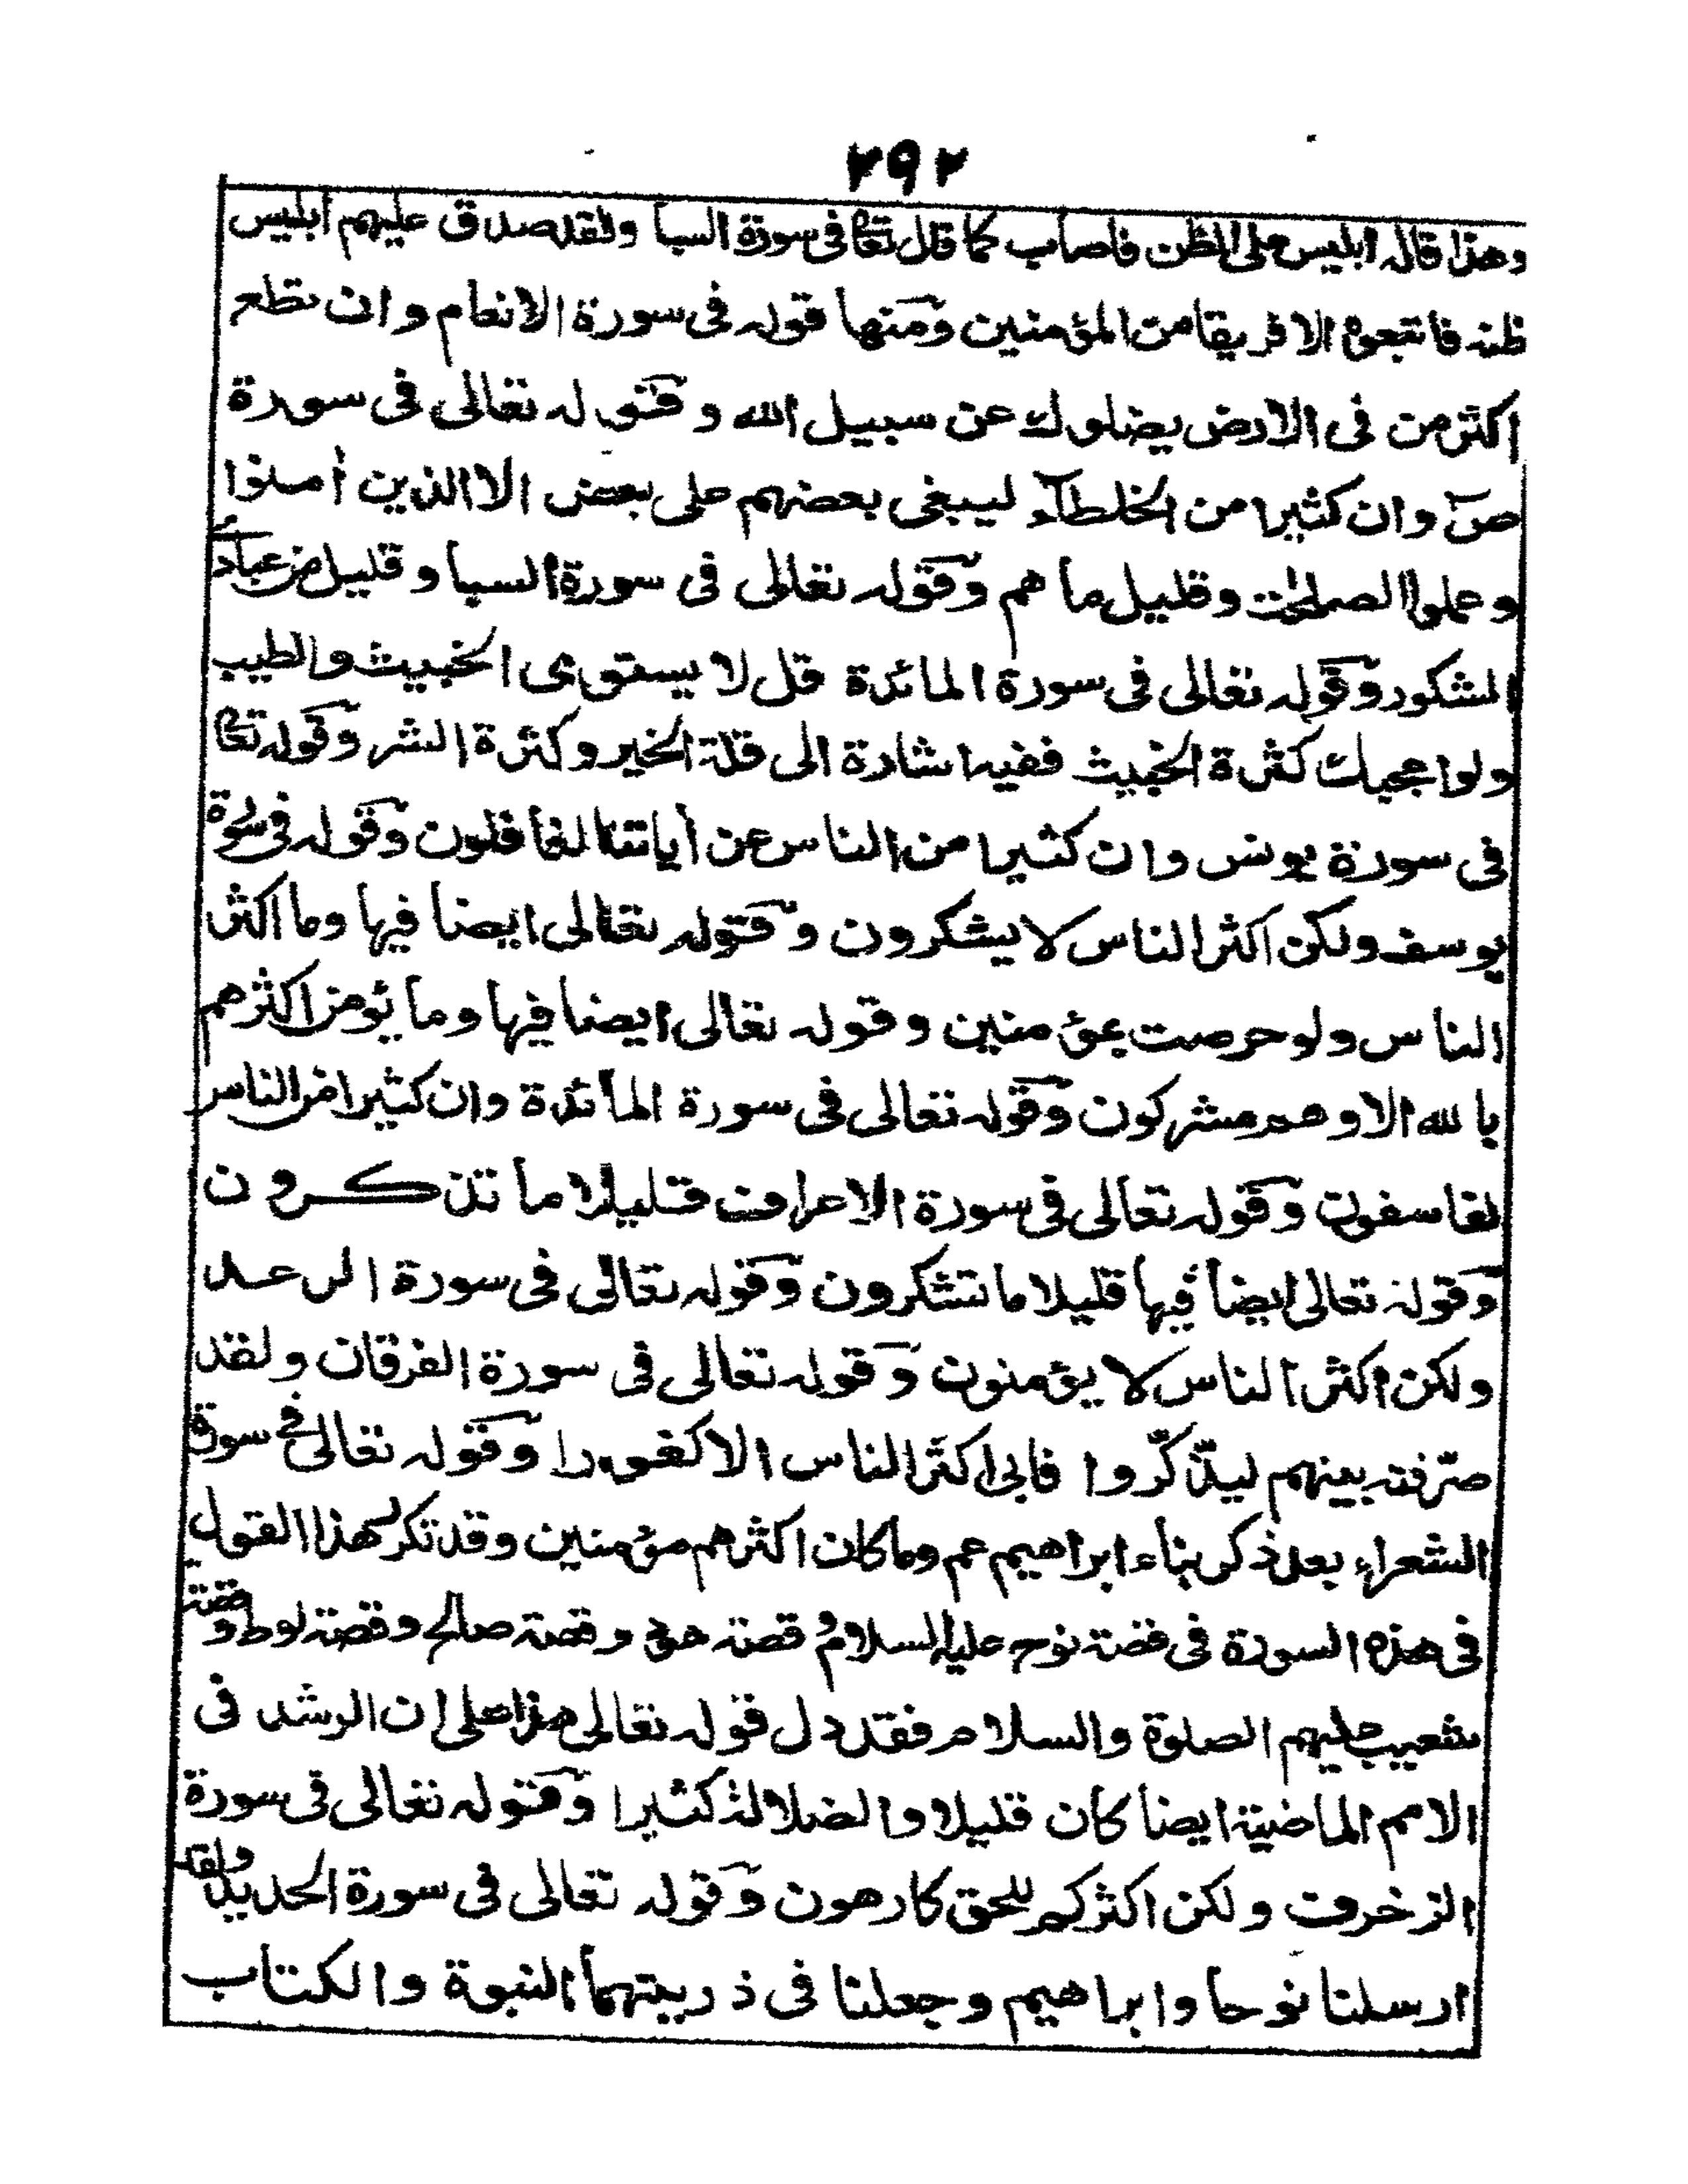 ٢٩٢
وهذا قاله ابليس على الظن فاصاب كما قال تعا فى سورة السبا ولقد صدق عليهم ابليس
ظنه فاتبعوه الا فريقا من المؤمنين ومنها قوله فى سورة الانعام وان تطع
اكثر من فى الارض يضلوك عن سبيل الله وقوله تعالى فى سورة
صٓ وان كثيرا من الخلطآء ليبغى بعضهم على بعض الا الذين أمنوا
وعملوا الصلحت وقليل ما هم وقوله تعالى فى سورة السبا وقليل من عبادى
الشكور وقوله تعالى فى سورة المائدة قل لا يستوى الخبيث والطيب
ولو اعجبك كثرة الخبيث ففيه اشارة الى قلة الخير وكثرة الشر وقوله تعا
فى سورة يونس وان كثيرا من الناس عن أياتنا لغافلون وقوله فى سورة
يوسف ولكن اكثر الناس لا يشكرون وقوله تعالى ايضا فيها وما اكثر
الناس ولو حرصت بمؤمنين وقوله تعالى ايضا فيها وما يؤمن اكثرهم
بالله الا وهم مشركون وقوله تعالى فى سورة المائدة وان كثيرا من الناس
لفاسقون وقوله تعالى فى سورة الاعراف قليلا ما تذكرون
وقوله تعالى ايضا فيها قليلا ما تشكرون وقوله تعالى فى سورة الرعد
ولكن اكثر الناس لا يؤمنون وقوله تعالى فى سورة الفرقان ولقد
صرّفنه بينهم ليذّكّروا فابى اكثر الناس الا كفورا وقوله تعالى فى سورة
الشعراء بعد ذكر نباء ابراهيم عم وما كان اكثرهم مؤمنين وقد تكرر هذا القول
فى هذه السورة فى قصة نوح عليه السلام و قصة هود وقصة صالح وقصة لوط و قصة
شعيب عليهم الصلوة والسلام فقد دل قوله تعالى هذا على ان الرشد فى
الامم الماضية ايضا كان قليلا والضلالة كثيرا وقوله تعالى فى سورة
الزخرف ولكن اكثركم للحق كارهون وقوله تعالى فى سورة الحديد ولقد
ارسلنا نوحا وابراهيم وجعلنا فى ذريتهما النبوة والكتاب